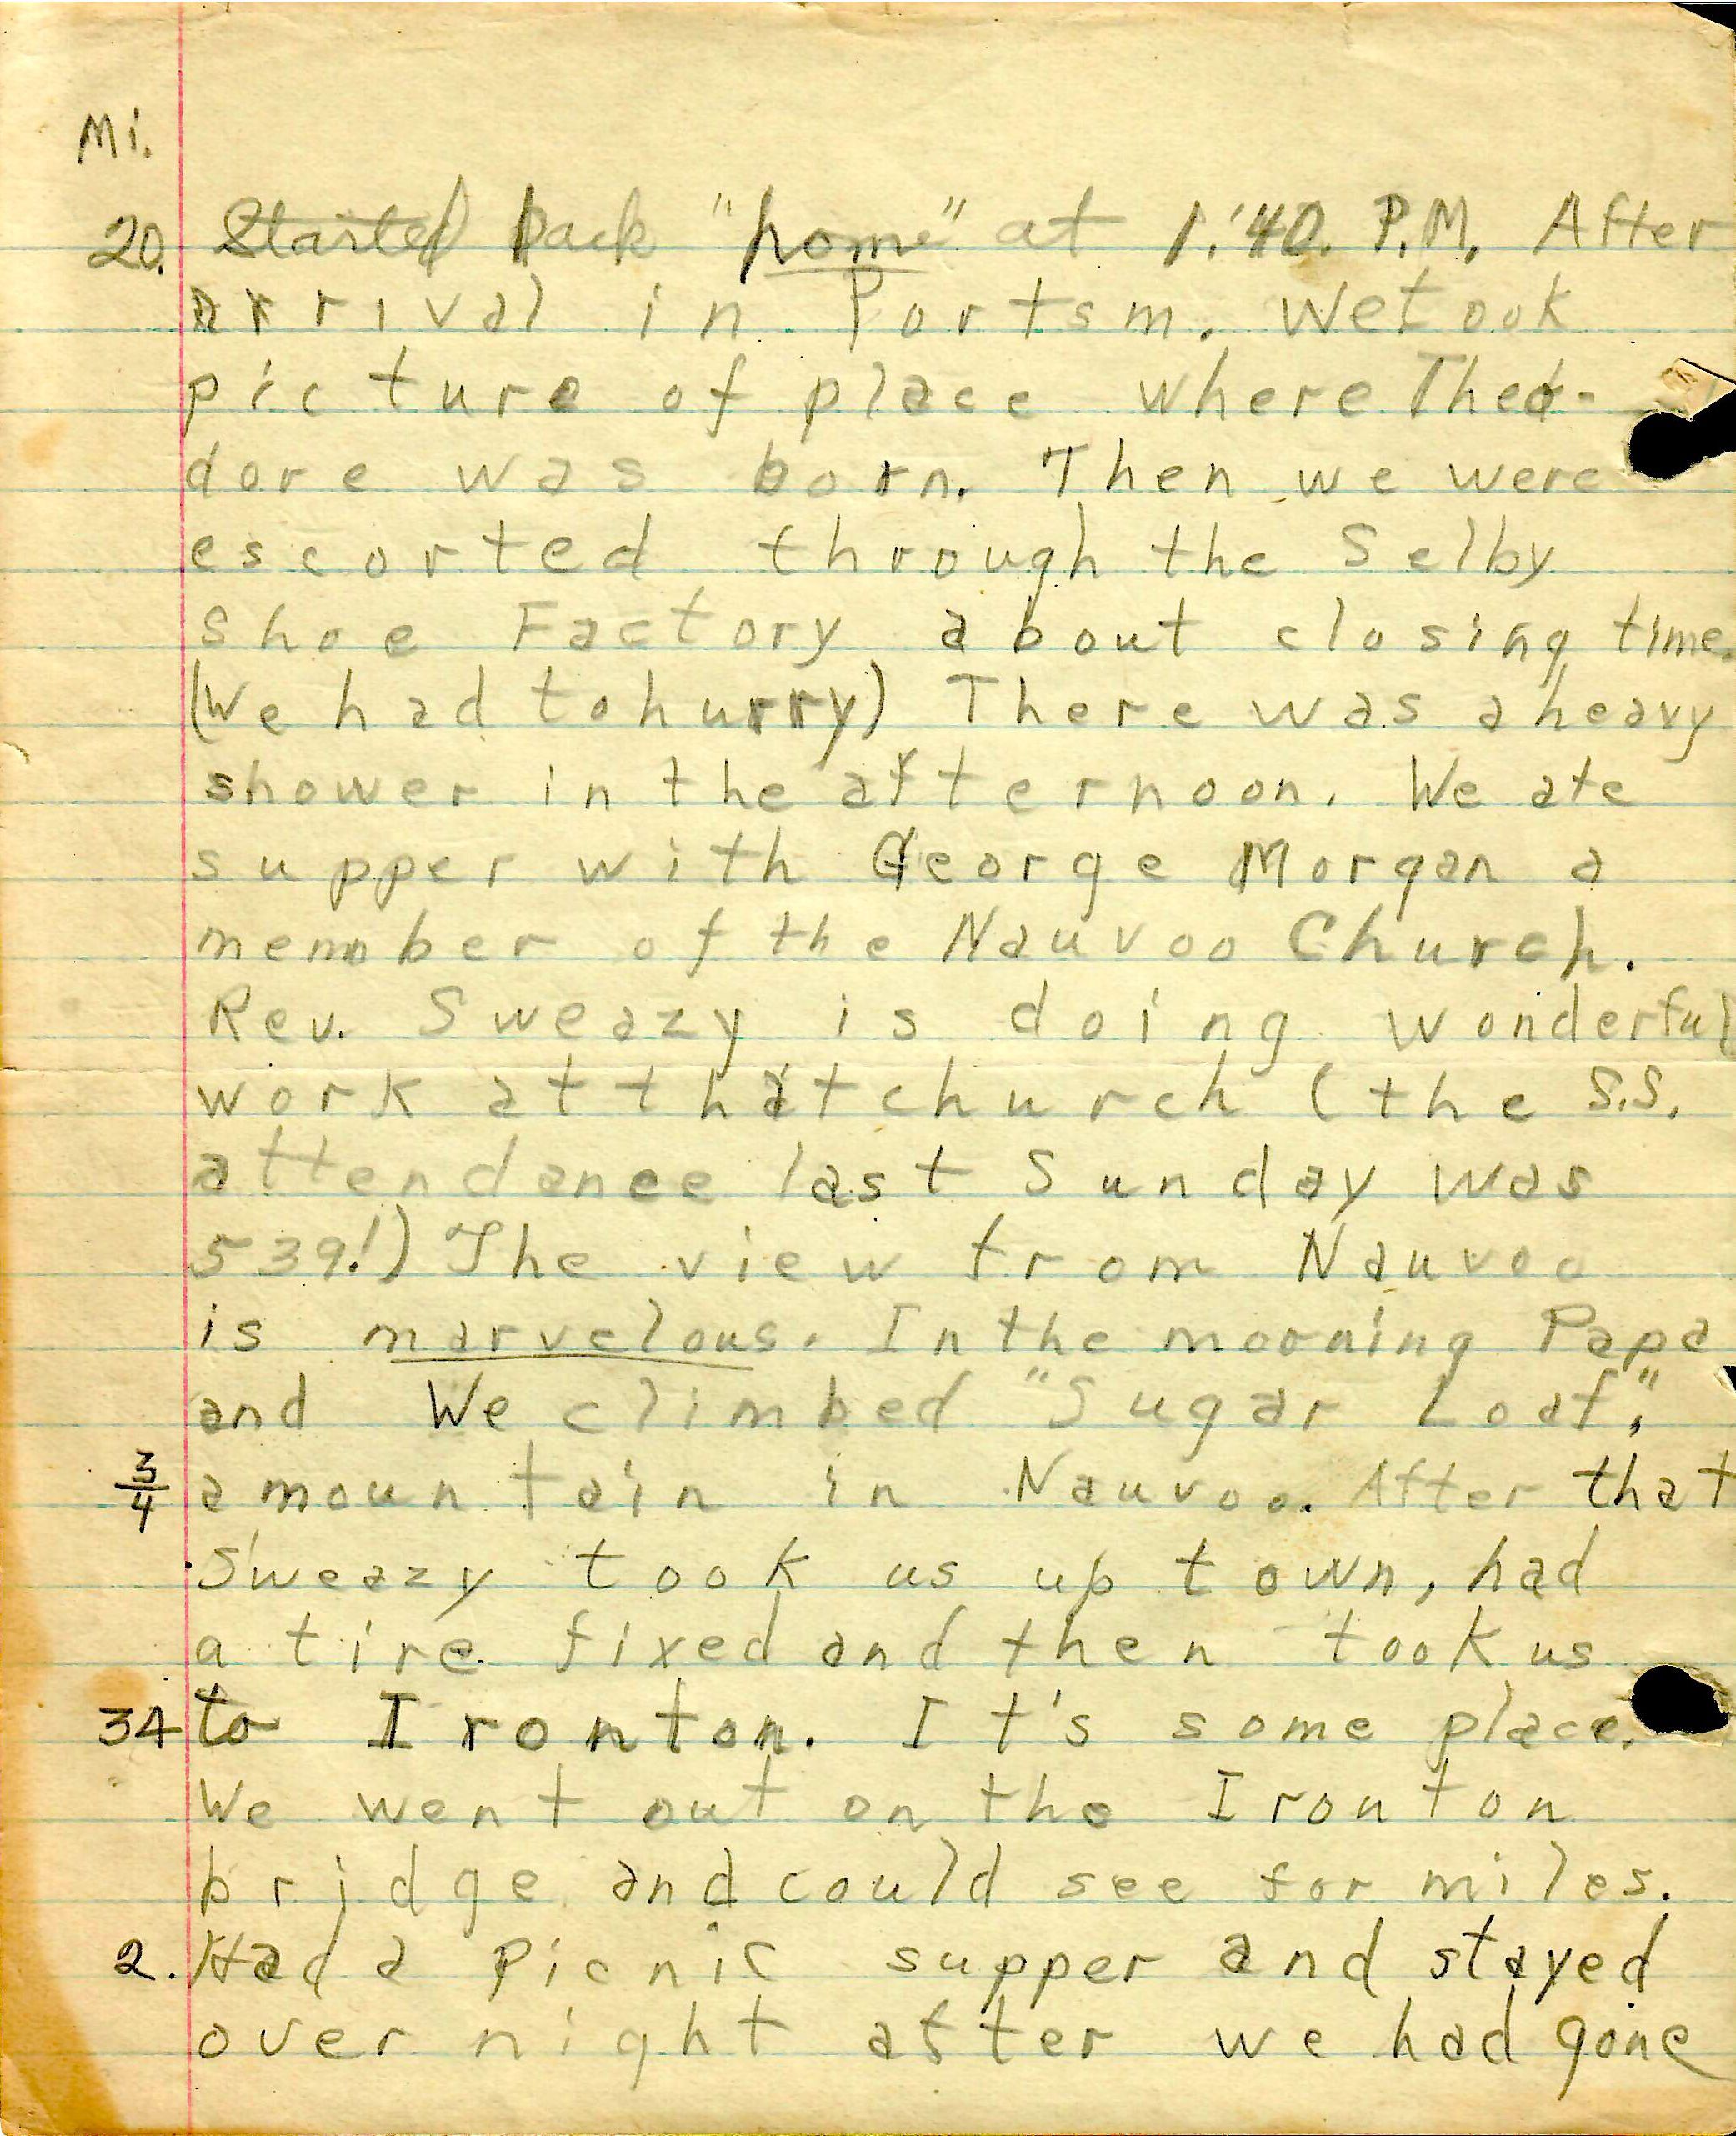 Mi.
20. Started back "home" at 1:40. P.M. After
arrival in Portsm. We took
picture of place where Theo-
dore was born. Then we were
escorted through the Selby
Shoe Factory about closing time.
(We had to hurry) There was a heavy
shower in the afternoon. We ate
supper with George Morgan a
member of the Nauvoo Church.
Rev. Sweazy is doing wonderful
work at that church (the S.S.
attendance last Sunday was
539!) The view from Nauvoo
is marvelous. In the morning Papa
and We climbed "Sugar Loaf",
3/4 a mountain in Nauvoo. After that
Sweazy took us up town, had
a tire fixed and then took us
34 to Ironton. It's some place.
We went out on the Ironton
bridge and could see for miles.
2. Had a Picnic supper and stayed
over night after we had gone